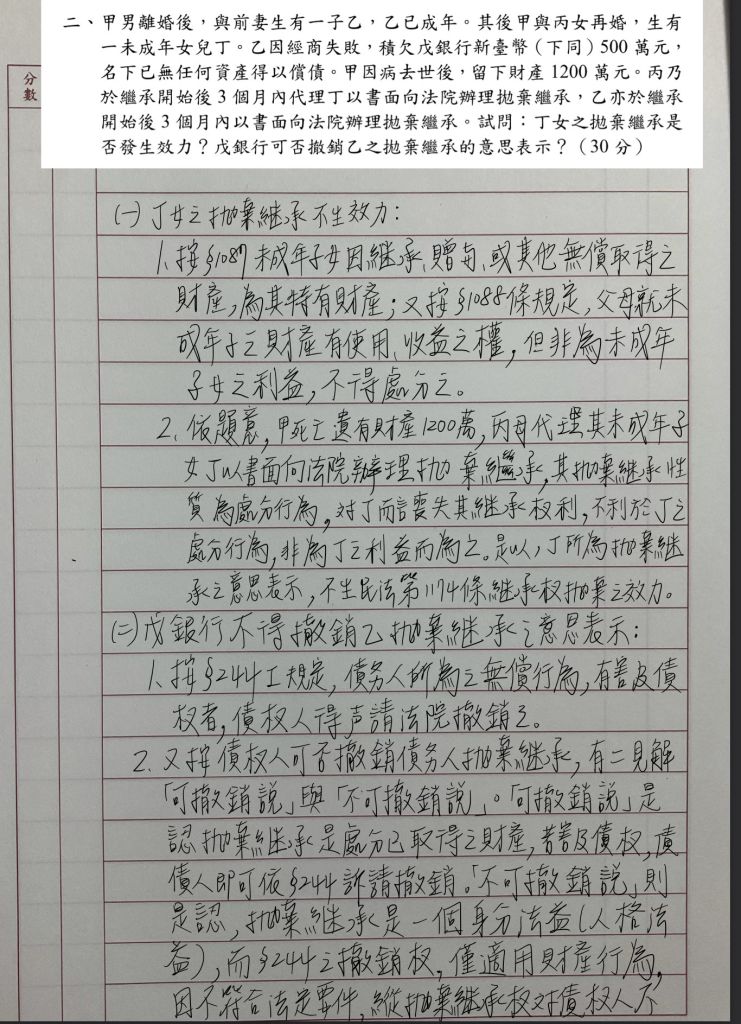 二、甲男離婚後，與前妻生有一子乙，乙已成年。其後甲與丙女再婚，生有
一未成年女兒丁。乙因經商失敗，積欠戊銀行新臺幣（下同）500 萬元，
名下已無任何資產得以償債。甲因病去世後，留下財產 1200 萬元。丙乃
於繼承開始後 3 個月內代理丁以書面向法院辦理拋棄繼承，乙亦於繼承
開始後 3 個月內以書面向法院辦理拋棄繼承。試問：丁女之拋棄繼承是
否發生效力？戊銀行可否撤銷乙之拋棄繼承的意思表示？（30 分）
分數
(一)丁女之拋棄継承不生效力：
1、按§1087未成年子女因継承、贈与、或其他無償取得之
財產，為其特有財產；又按§1088條規定，父母就未
成年子之財產有使用、收益之權，但非為未成年
子女之利益，不得處分之。
2、依題意，甲死亡遺有財產1200萬，丙母代理其未成年子
女丁以書面向法院辦理拋棄継承，其拋棄継承性
質為處分行為，対丁而言喪失其継承权利，不利於丁之
處分行為，非為丁之利益而為之。是以，丁所為拋棄継
承之意思表示，不生民法第1174條継承权拋棄之效力。
(二)戊銀行不得撤銷乙拋棄継承之意思表示：
1、按§244I規定，債务人所為之無償行為，有害及債
权者，債权人得声請法院撤銷之。
2、又按債权人可否撤銷債务人拋棄継承，有二見解
「可撤銷說」與「不可撤銷說」。「可撤銷說」是
認拋棄継承是處分已取得之財產，若害及債权，債
債人即可依§244訴請撤銷。「不可撤銷說」則
是認，拋棄継承是一個身分法益(人格法
益)，而§244之撤銷权，僅適用財產行為，
因不符合法定要件，縱拋棄継承权対債权人不